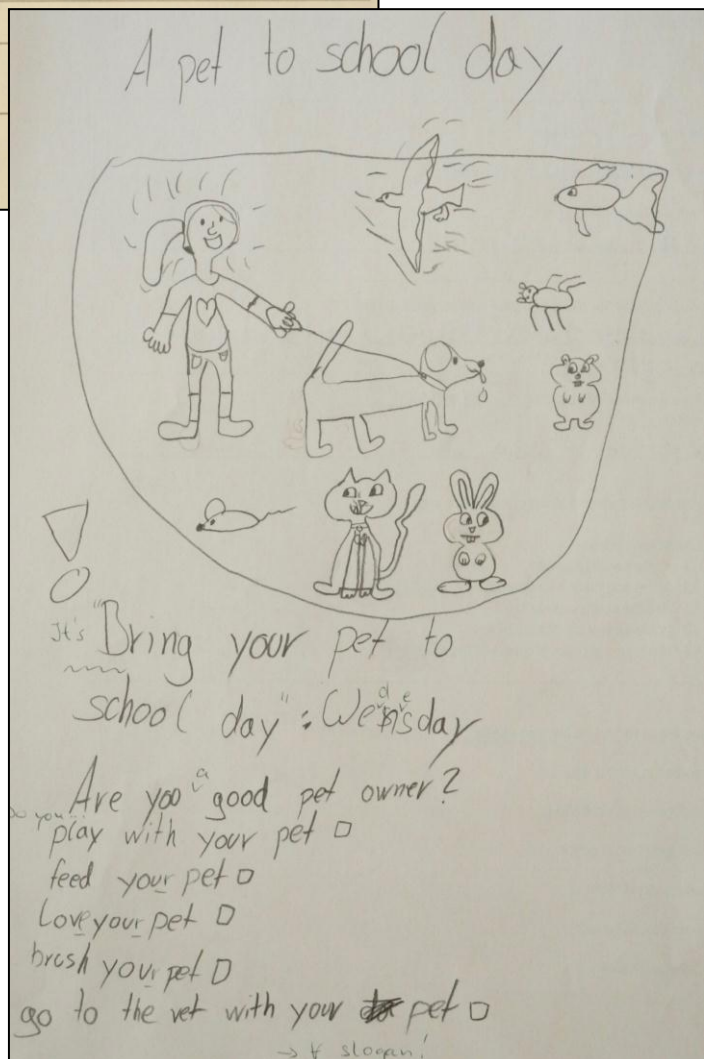 A pet to school day
It's "Bring your pet to
school day": Wednesday
Are yoo a good pet owner?
Do you...
play with your pet □
feed your pet □
Love your pet □
brush your pet □
go to the vet with your pet □
slogan!